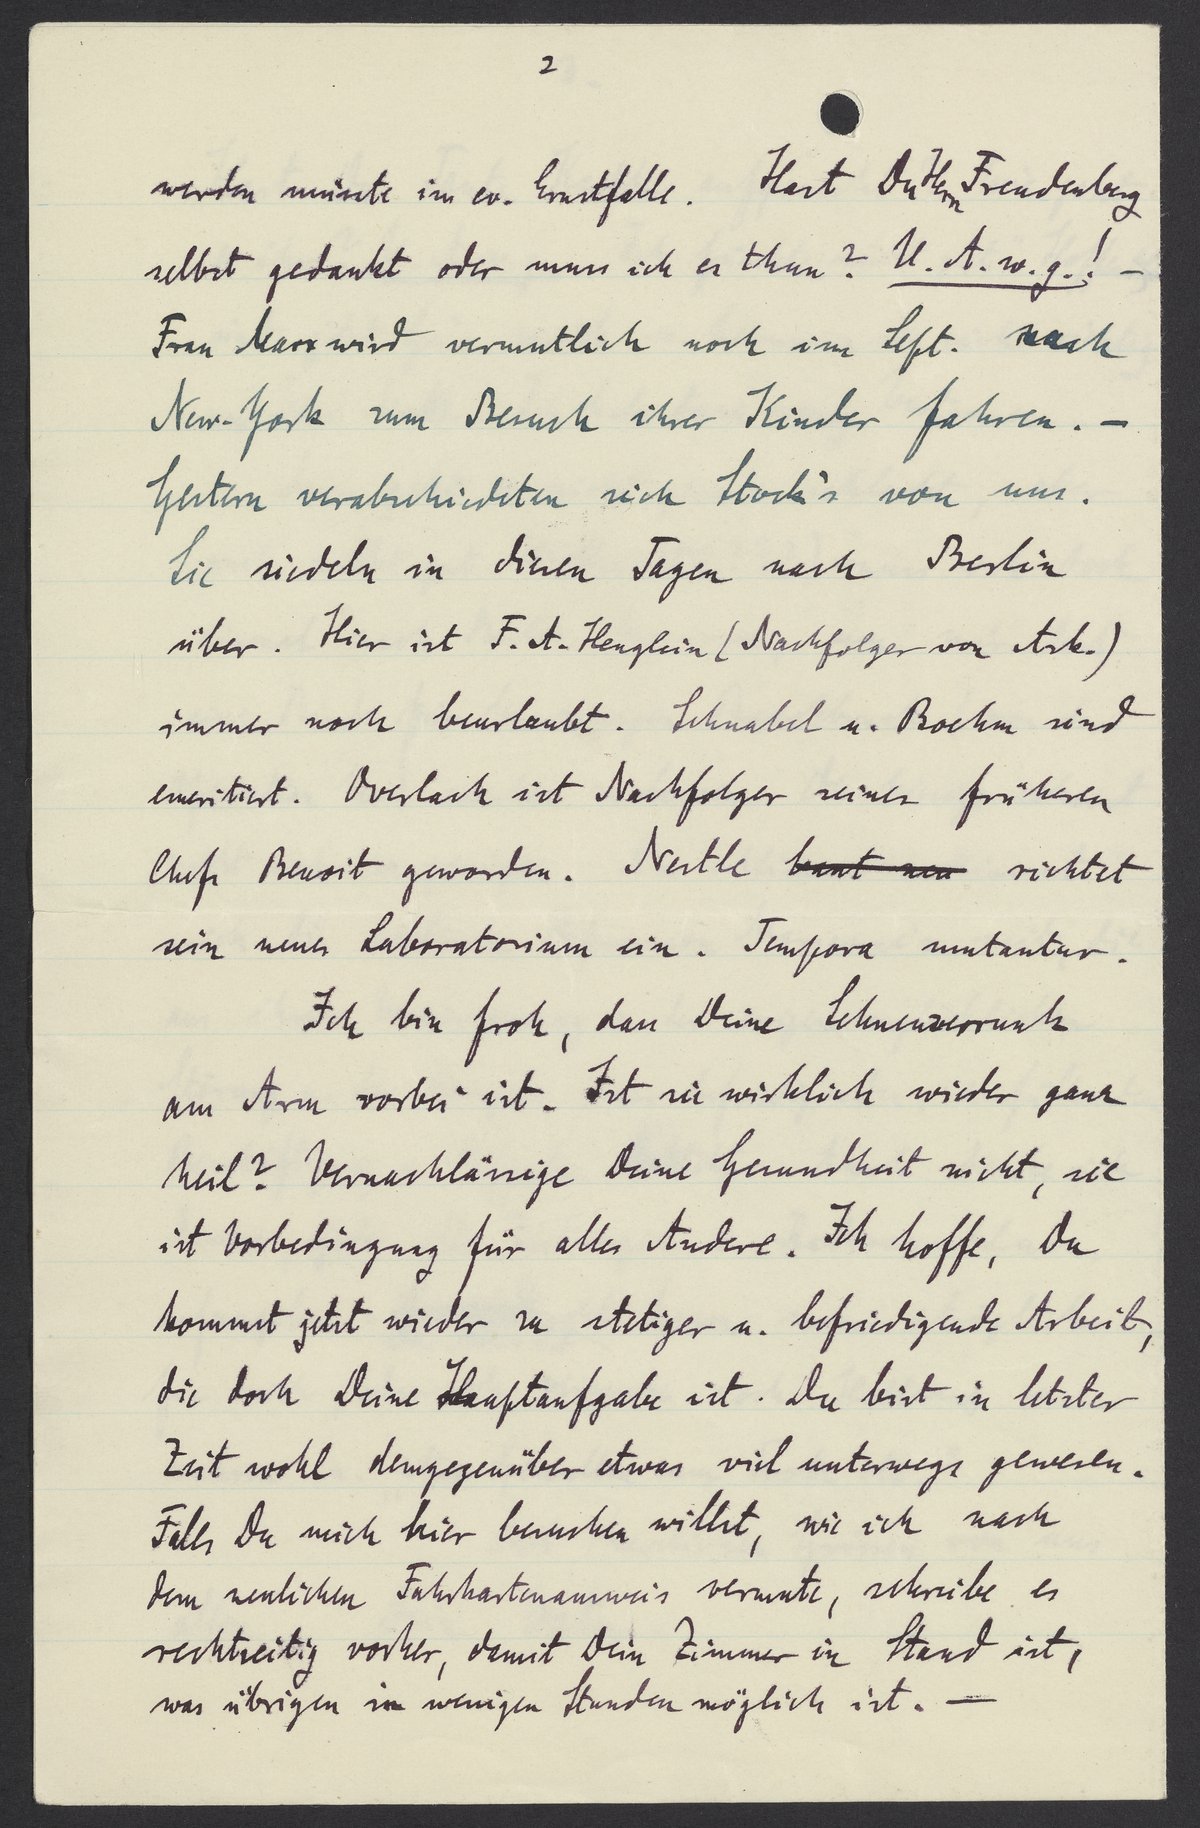 2
werden müsste im ev. Ernstfalle. Hast Du Herrn Freudenberg
selbst gedankt oder muss ich es thun? U. A. w. g.! –
Frau Marx wird vermutlich noch im Sept. nach
New-York zum Besuch ihrer Kinder fahren. –
Gestern verabschiedeten sich Stock's von uns.
Sie siedeln in diesen Tagen nach Berlin
über. Hier ist F. A. Henglein (Nachfolger von Ask.)
immer noch beurlaubt. Schnabel u. Boehm sind
emeritiert. Overlach ist Nachfolger seines früheren
Chefs Benoit geworden. Nestle baut neu richtet
sein neues Laboratorium ein. Tempora mutantur.
Ich bin froh, dass Deine Sehnenzerrunk
am Arm vorbei ist. Ist sie wirklich wieder ganz
heil? Vernachlässige Deine Gesundheit nicht, sie
ist Vorbedingung für alles Andere. Ich hoffe, Du
kommst jetzt wieder zu stetiger u. befriedigende Arbeit,
die doch Deine Hauptaufgabe ist. Du bist in letzter
Zeit wohl demgegenüber etwas viel unterwegs gewesen.
Falls Du mich hier besuchen willst, wie ich nach
dem neulichen Fahrkartenausweis vermute, schreibe es
rechtzeitig vorher, damit Dein Zimmer in Stand ist,
was übrigen in wenigen Stunden möglich ist. —